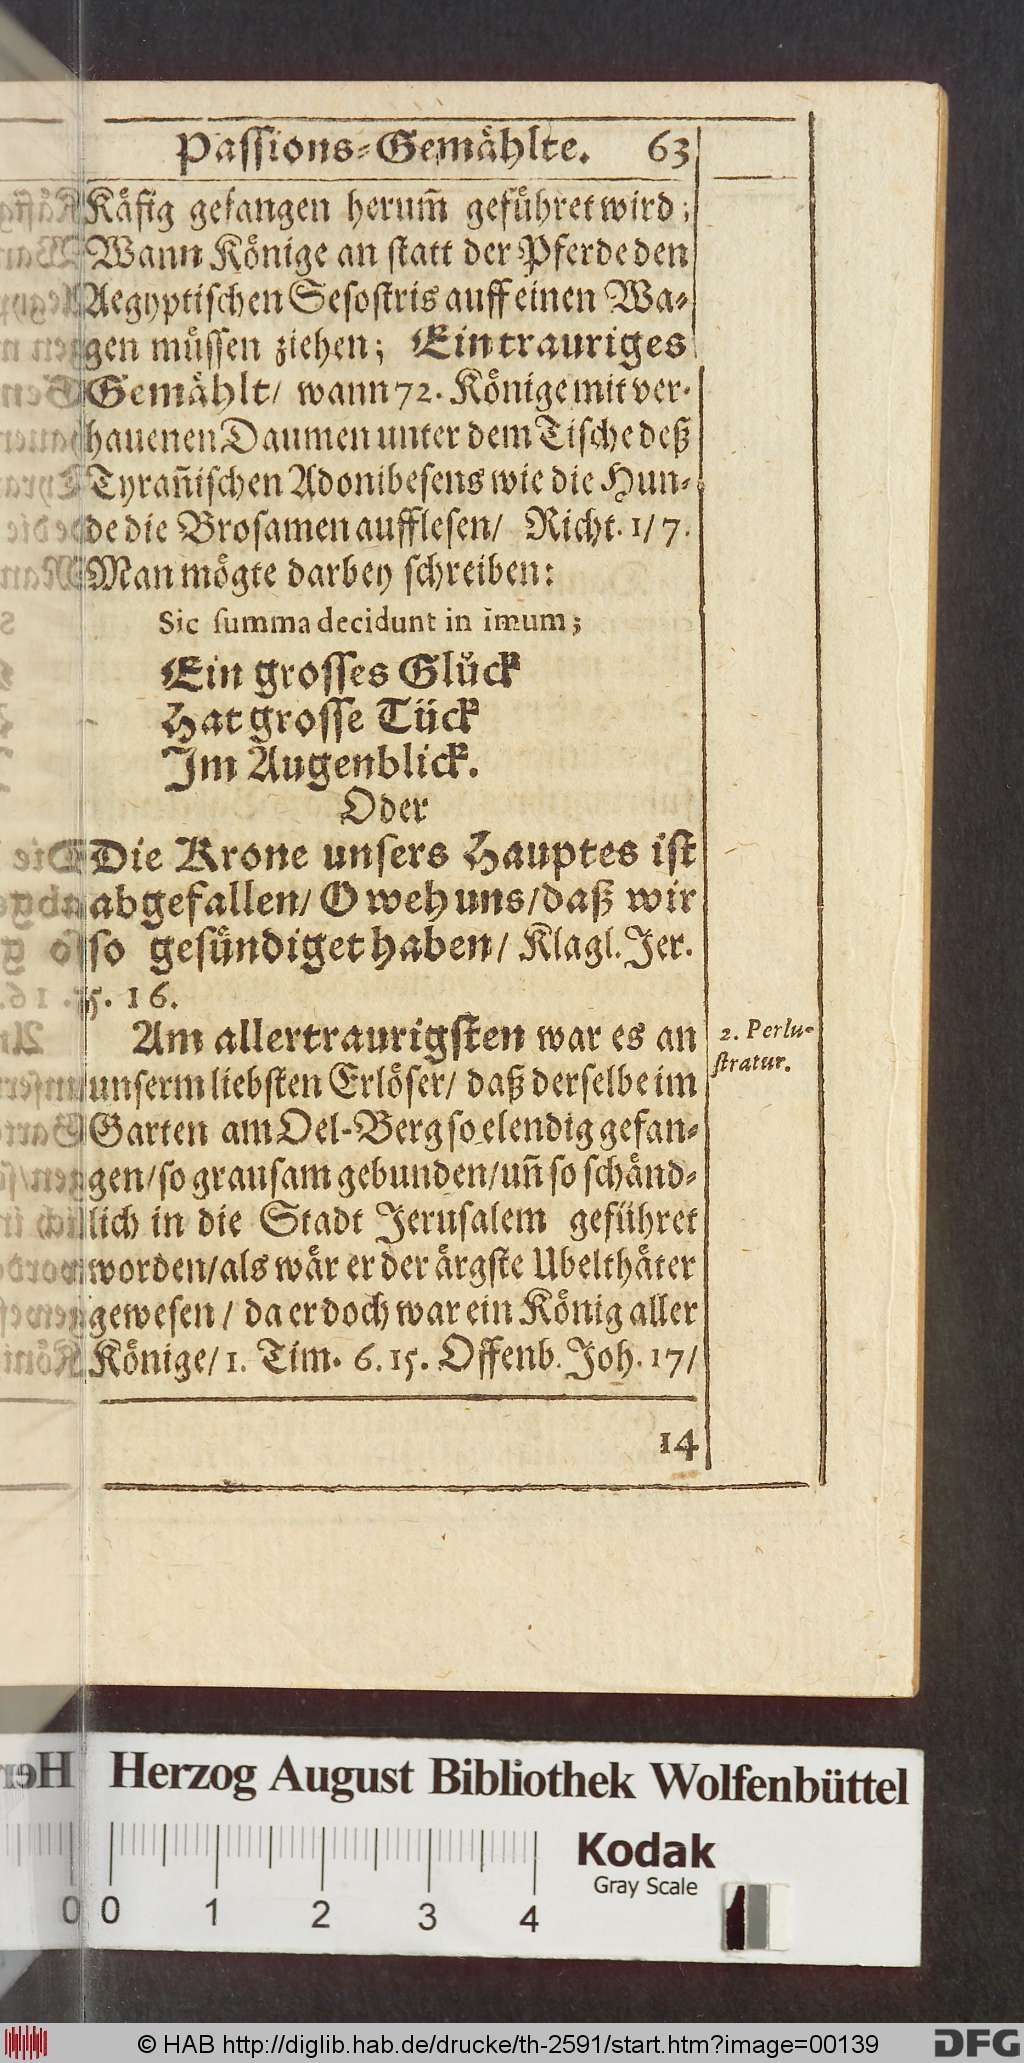 Passions-Gemählte. 63
Käfig gefangen herum̃ geführet wird;
Wann Könige an statt der Pferde den
Aegyptischen Sesostris auff einen Wa-
gen müssen ziehen; Ein trauriges
Gemählt/ wann 72. Könige mit ver-
hauenen Daumen unter dem Tische deß
Tyrañischen Adonibesens wie die Hun-
de die Brosamen aufflesen/ Richt. 1/ 7.
Man mögte darbey schreiben:
Sic summa decidunt in imum;
Ein grosses Glück
Hat grosse Tück
Im Augenblick.
Oder
Die Krone unsers Hauptes ist
abgefallen/ O weh uns/ daß wir
so gesündiget haben/ Klagl. Jer.
5. 16.
Am allertraurigsten war es an
2. Perlu-
stratur.
unserm liebsten Erlöser/ daß derselbe im
Garten am Oel-Berg so elendig gefan-
gen/ so grausam gebunden/ uñ so schänd-
lich in die Stadt Jerusalem geführet
worden/ als wär er der ärgste Ubelthäter
gewesen/ da er doch war ein König aller
Könige/ 1. Tim. 6. 15. Offenb. Joh. 17/
14
Herzog August Bibliothek Wolfenbüttel
Kodak
Gray Scale
0 0 1 2 3 4
© HAB http://diglib.hab.de/drucke/th-2591/start.htm?image=00139
DFG